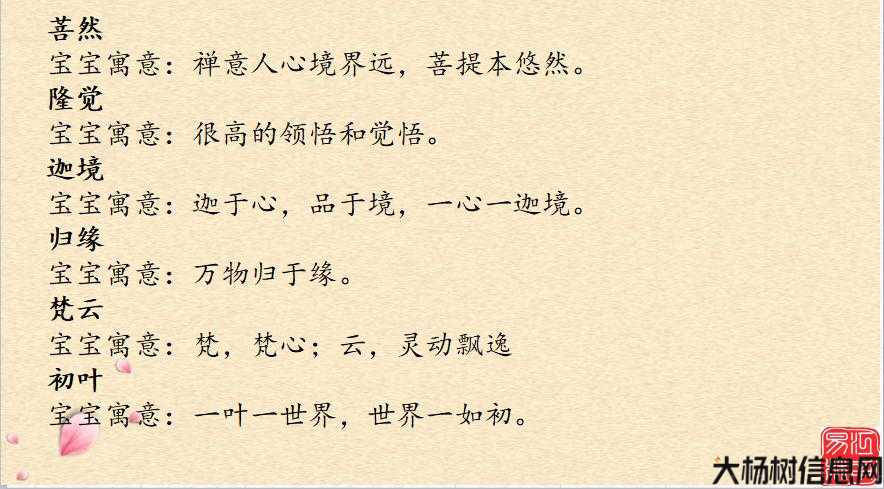 菩然
宝宝寓意：禅意人心境界远，菩提本悠然。
隆觉
宝宝寓意：很高的领悟和觉悟。
迦境
宝宝寓意：迦于心，品于境，一心一迦境。
归缘
宝宝寓意：万物归于缘。
梵云
宝宝寓意：梵，梵心；云，灵动飘逸
初叶
宝宝寓意：一叶一世界，世界一如初。
大杨树信息网